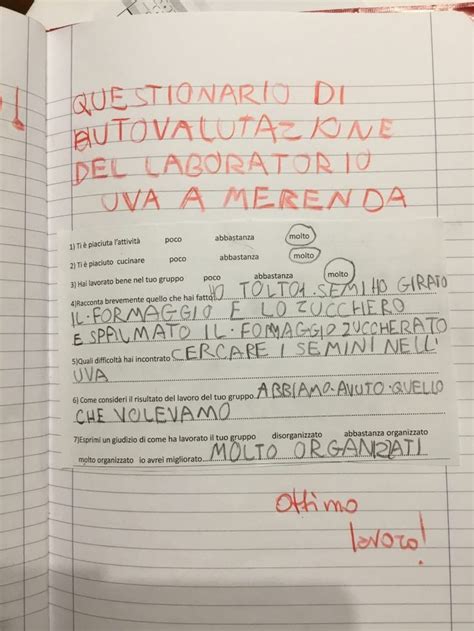 QUESTIONARIO DI
AUTOVALUTAZIONE
DEL LABORATORIO
UVA A MERENDA
1) Ti è piaciuta l'attività poco abbastanza molto
2) Ti è piaciuto cucinare poco abbastanza molto
3) Hai lavorato bene nel tuo gruppo poco abbastanza molto
4)Racconta brevemente quello che hai fatto HO TOLTO I SEMI HO GIRATO
IL FORMAGGIO E LO ZUCCHERO
E SPALMATO IL FORMAGGIO ZUCCHERATO
5)Quali difficoltà hai incontrato CERCARE I SEMINI NELL'
UVA
6) Come consideri il risultato del lavoro del tuo gruppo ABBIAMO AVUTO QUELLO
CHE VOLEVAMO
7)Esprimi un giudizio di come ha lavorato il tuo gruppo disorganizzato abbastanza organizzato
molto organizzato io avrei migliorato MOLTO ORGANIZATI
Ottimo
lavoro!